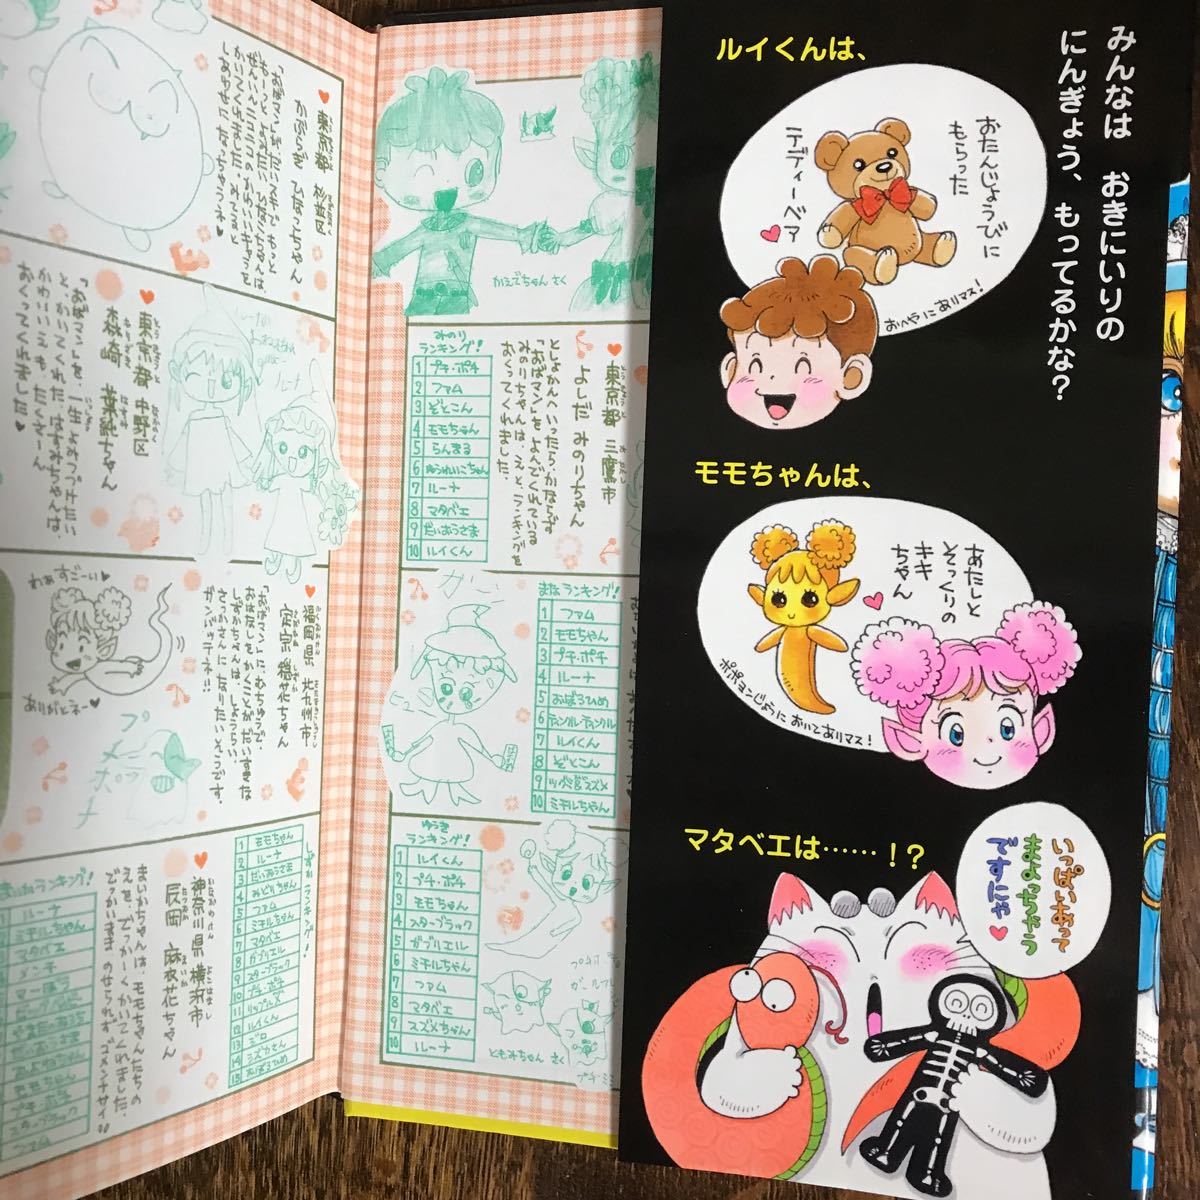 みんなは おきにいりの
にんぎょう、もってるかな?
ルイくんは、
おたんじょうびに
もらった
テディーベア
おへやにありマス!
モモちゃんは、
あたしと
そっくりの
キキ
ちゃん
ポポヨンじょうに おいてありマス!
マタベエは……!?
いっぱいあって
まよっちゃう
ですにゃ♥
かえでちゃん さく
♥東京都 三鷹市
よしだ みのりちゃん
としょかんへいったら、かならず
「おばマン」を よんでくれている
みのりちゃんは、えと、ランキングを
おくってくれました。
みのり
ランキング!
1 プチ・ポチ
2 ファム
3 ぞとこん
4 モモちゃん
5 らんまる
6 ゆうれいこちゃん
7 ルーナ
8 マタベエ
9 だいおうさま
10 ルイくん
まなランキング!
1 ファム
2 モモちゃん
3 プチ・ポチ
4 ルーナ
5 おぼろひめ
7 ルイくん
8 ぞとこん
10 ミチルちゃん
ゆうき
ランキング!
1 ルイくん
2 プチ・ポチ
3 モモちゃん
4 スターブラック
5 ガブリエル
6 ミチルちゃん
7 ファム
8 マタベエ
9 スズメちゃん
10 ルーナ
ともみちゃん さく
♥東京都 杉並区
かぶらぎ ひなこちゃん
「おばマン」がだいスキで、もっと
もーっと よみたい ひなこちゃんは、
ぜんいんニコニコの かわいいキャラを
かいてくれました。みてると
しあわせに なっちゃうネ♥
♥東京都 中野区
森崎 葉鷲ちゃん
「おばマン」を、一生よみつづけたい
と、かいてくれた、はすみちゃんは、
かわいいえも、たくさーん
おくってくれました♥
♥福岡県 北九州市
定宗 穏花ちゃん
「おばマン」に むちゅうで、
おはなしをかくことが だいすきな
しずかちゃんは、しょうらい、
さっかさんに なりたいそうです。
ガンバッテネ!!
わぁすごーい♥
ありがとネー♥
ランキング!
1 モモちゃん
2 ルーナ
3 だいおうさま
4 みどりちゃん
5 ファム
6 ミチルちゃん
7 マタベエ
8 ガブリエル
9 スターブラック
10 プチ・ポチ
11 リップルズ
12 ルイくん
13 ジロ
14 シズカさん
15 おぼろひめ
♥神奈川県 横浜市
辰岡 麻衣花ちゃん
まいかちゃんは、モモちゃんたちの
えを、でっかーくかいてくれました。
でっかいまま のせられず ゴメンナサイ
ランキング!
ルーナ
ミチルちゃん
マタベエ
モモちゃん
プチ・ポチ
スターブラック
ファム